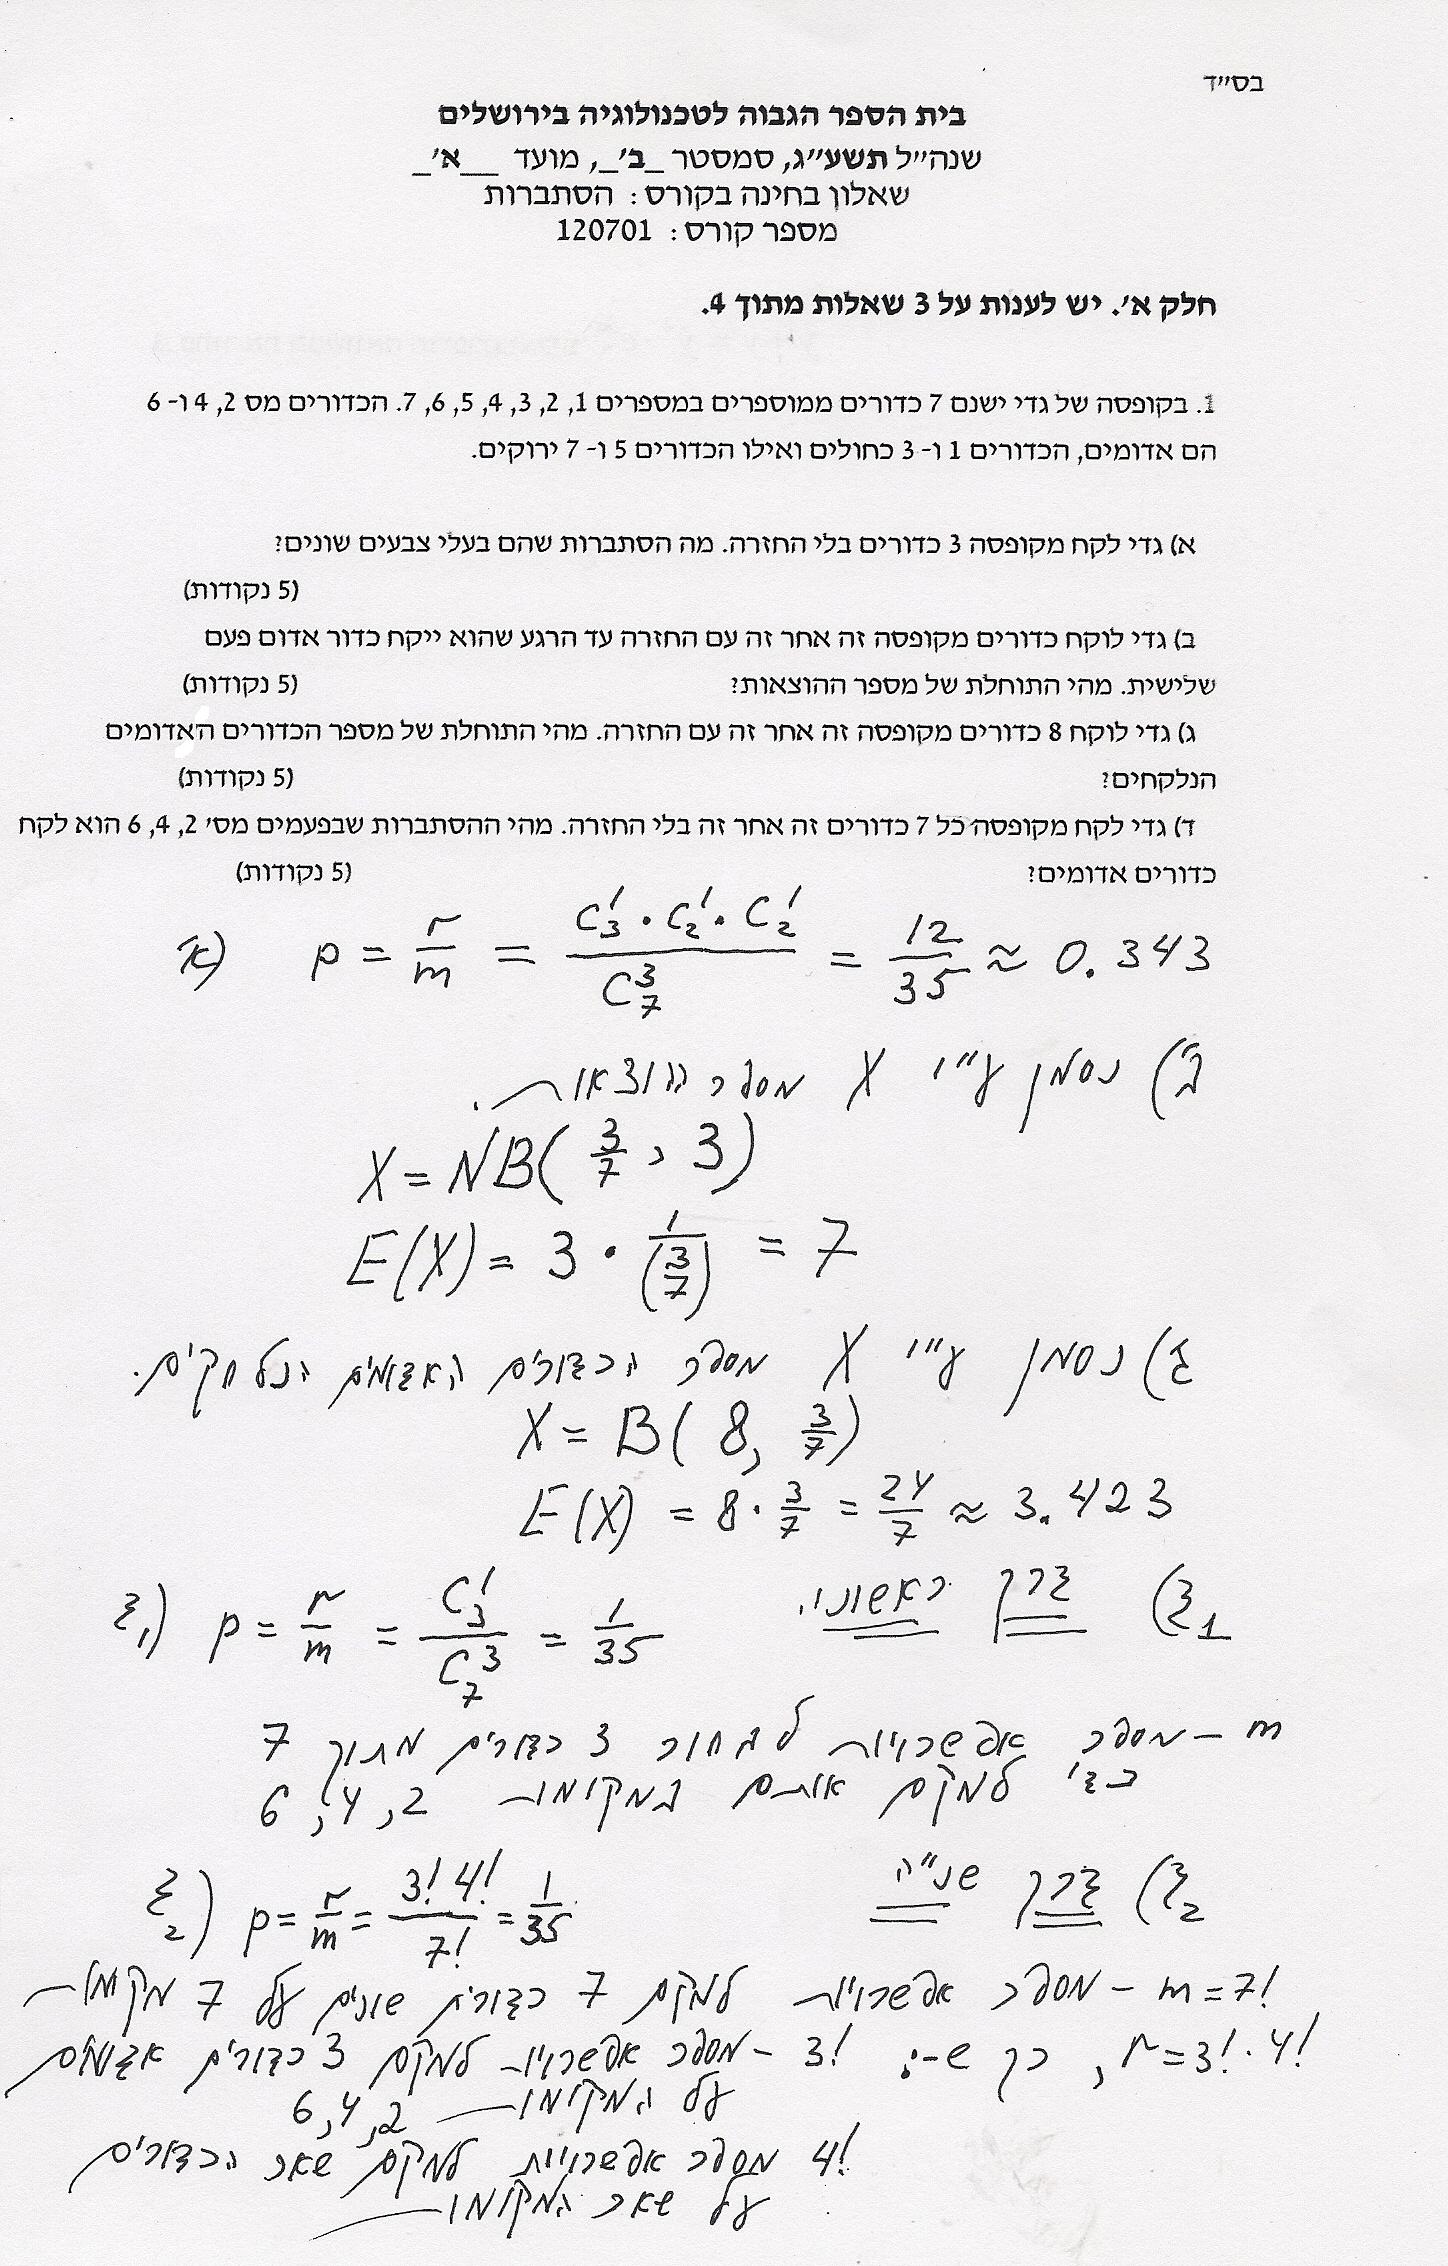 בס״ד
בית הספר הגבוה לטכנולוגיה בירושלים
שנה״ל תשע״ג, סמסטר _ב׳_, מועד __א׳_
שאלון בחינה בקורס: הסתברות
מספר קורס: 120701
חלק א׳. יש לענות על 3 שאלות מתוך 4.
1. בקופסה של גדי ישנם 7 כדורים ממוספרים במספרים 1, 2, 3, 4, 5, 6, 7. הכדורים מס 2, 4 ו- 6
הם אדומים, הכדורים 1 ו- 3 כחולים ואילו הכדורים 5 ו- 7 ירוקים.
א) גדי לקח מקופסה 3 כדורים בלי החזרה. מה הסתברות שהם בעלי צבעים שונים?
(5 נקודות)
ב) גדי לוקח כדורים מקופסה זה אחר זה עם החזרה עד הרגע שהוא ייקח כדור אדום פעם
שלישית. מהי התוחלת של מספר ההוצאות? (5 נקודות)
ג) גדי לוקח 8 כדורים מקופסה זה אחר זה עם החזרה. מהי התוחלת של מספר הכדורים האדומים
הנלקחים? (5 נקודות)
ד) גדי לקח מקופסה כל 7 כדורים זה אחר זה בלי החזרה. מהי ההסתברות שבפעמים מס׳ 2, 4, 6 הוא לקח
כדורים אדומים? (5 נקודות)
א) p = r/m = C₃¹ · C₂¹ · C₂¹ / C₇³ = 12/35 ≈ 0.343
ב) נסמן ע״י X מספר הוצאות.
X = NB( 3/7 , 3 )
E(X) = 3 · 1/(3/7) = 7
ג) נסמן ע״י X מספר הכדורים האדומים הנלקחים.
X = B( 8, 3/7 )
E(X) = 8 · 3/7 = 24/7 ≈ 3.423
ד1) דרך ראשוני.
ד1) p = r/m = C₃¹ / C₇³ = 1/35
m – מספר אפשרויות לבחור 3 כדורים מתוך 7
כדי למקם אותם במקומות 2, 4, 6
ד2) דרך שנ״ה
ד2) p = r/m = 3! 4! / 7! = 1/35
m = 7! – מספר אפשרויות למקם 7 כדורים שונים על 7 מקומות
r = 3! · 4! , כך ש-: 3! – מספר אפשרויות למקם 3 כדורים אדומים
על המקומות 2, 4, 6
4! מספר אפשרויות למקם שאר הכדורים
על שאר המקומות